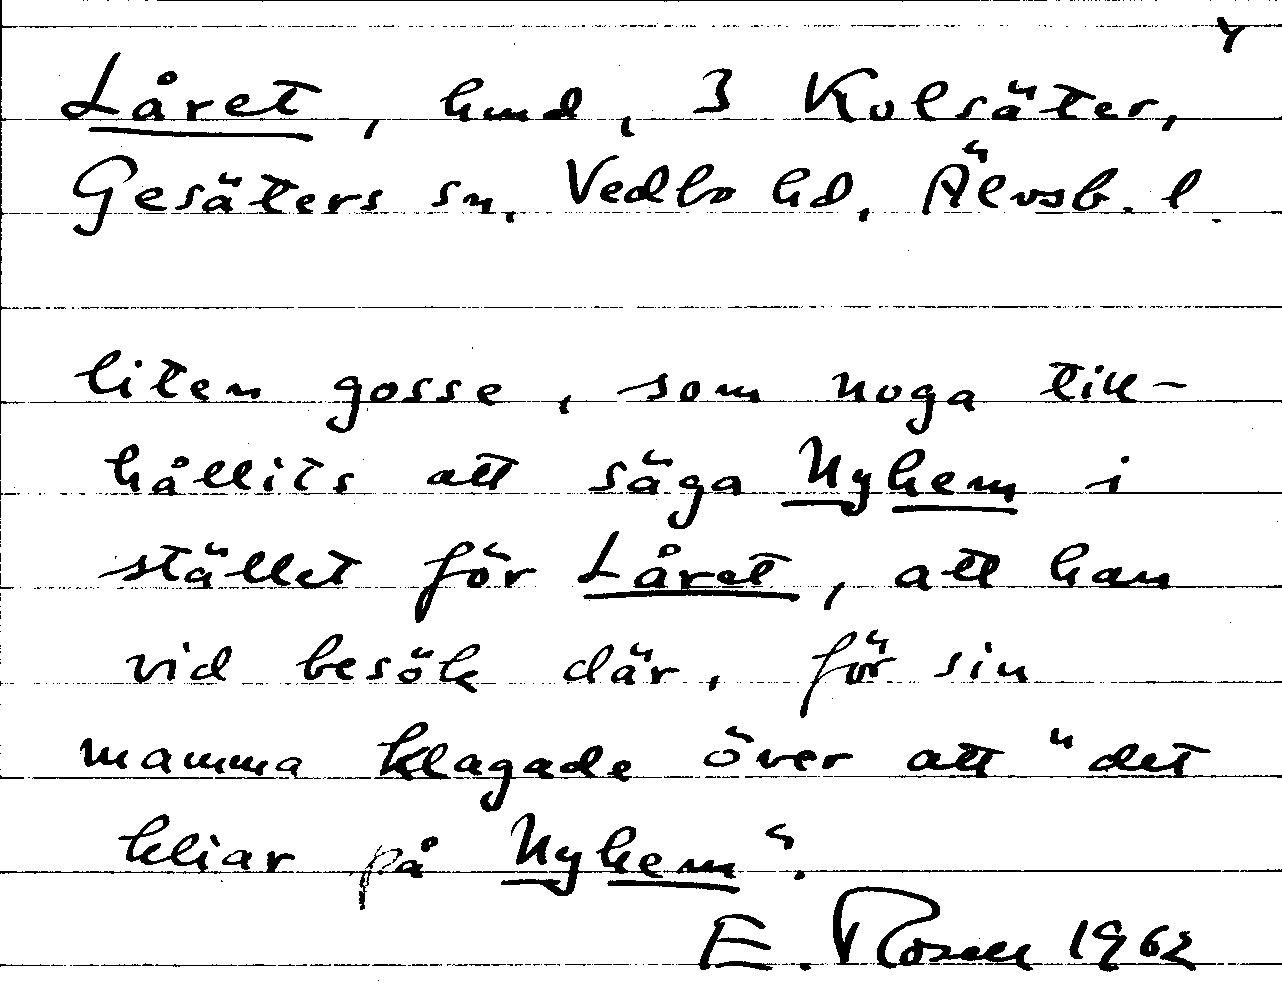 4
Låret, hmd, 3 Kolsäter,
Gesäters sn, Vedbo hd, Älvsb. l.
liten gosse, som noga till-
hållits att säga Nyhem i
stället för Låret, att han
vid besök där, för sin
mamma klagade över att "det
kliar på Nyhem".
E. Rosell 1962